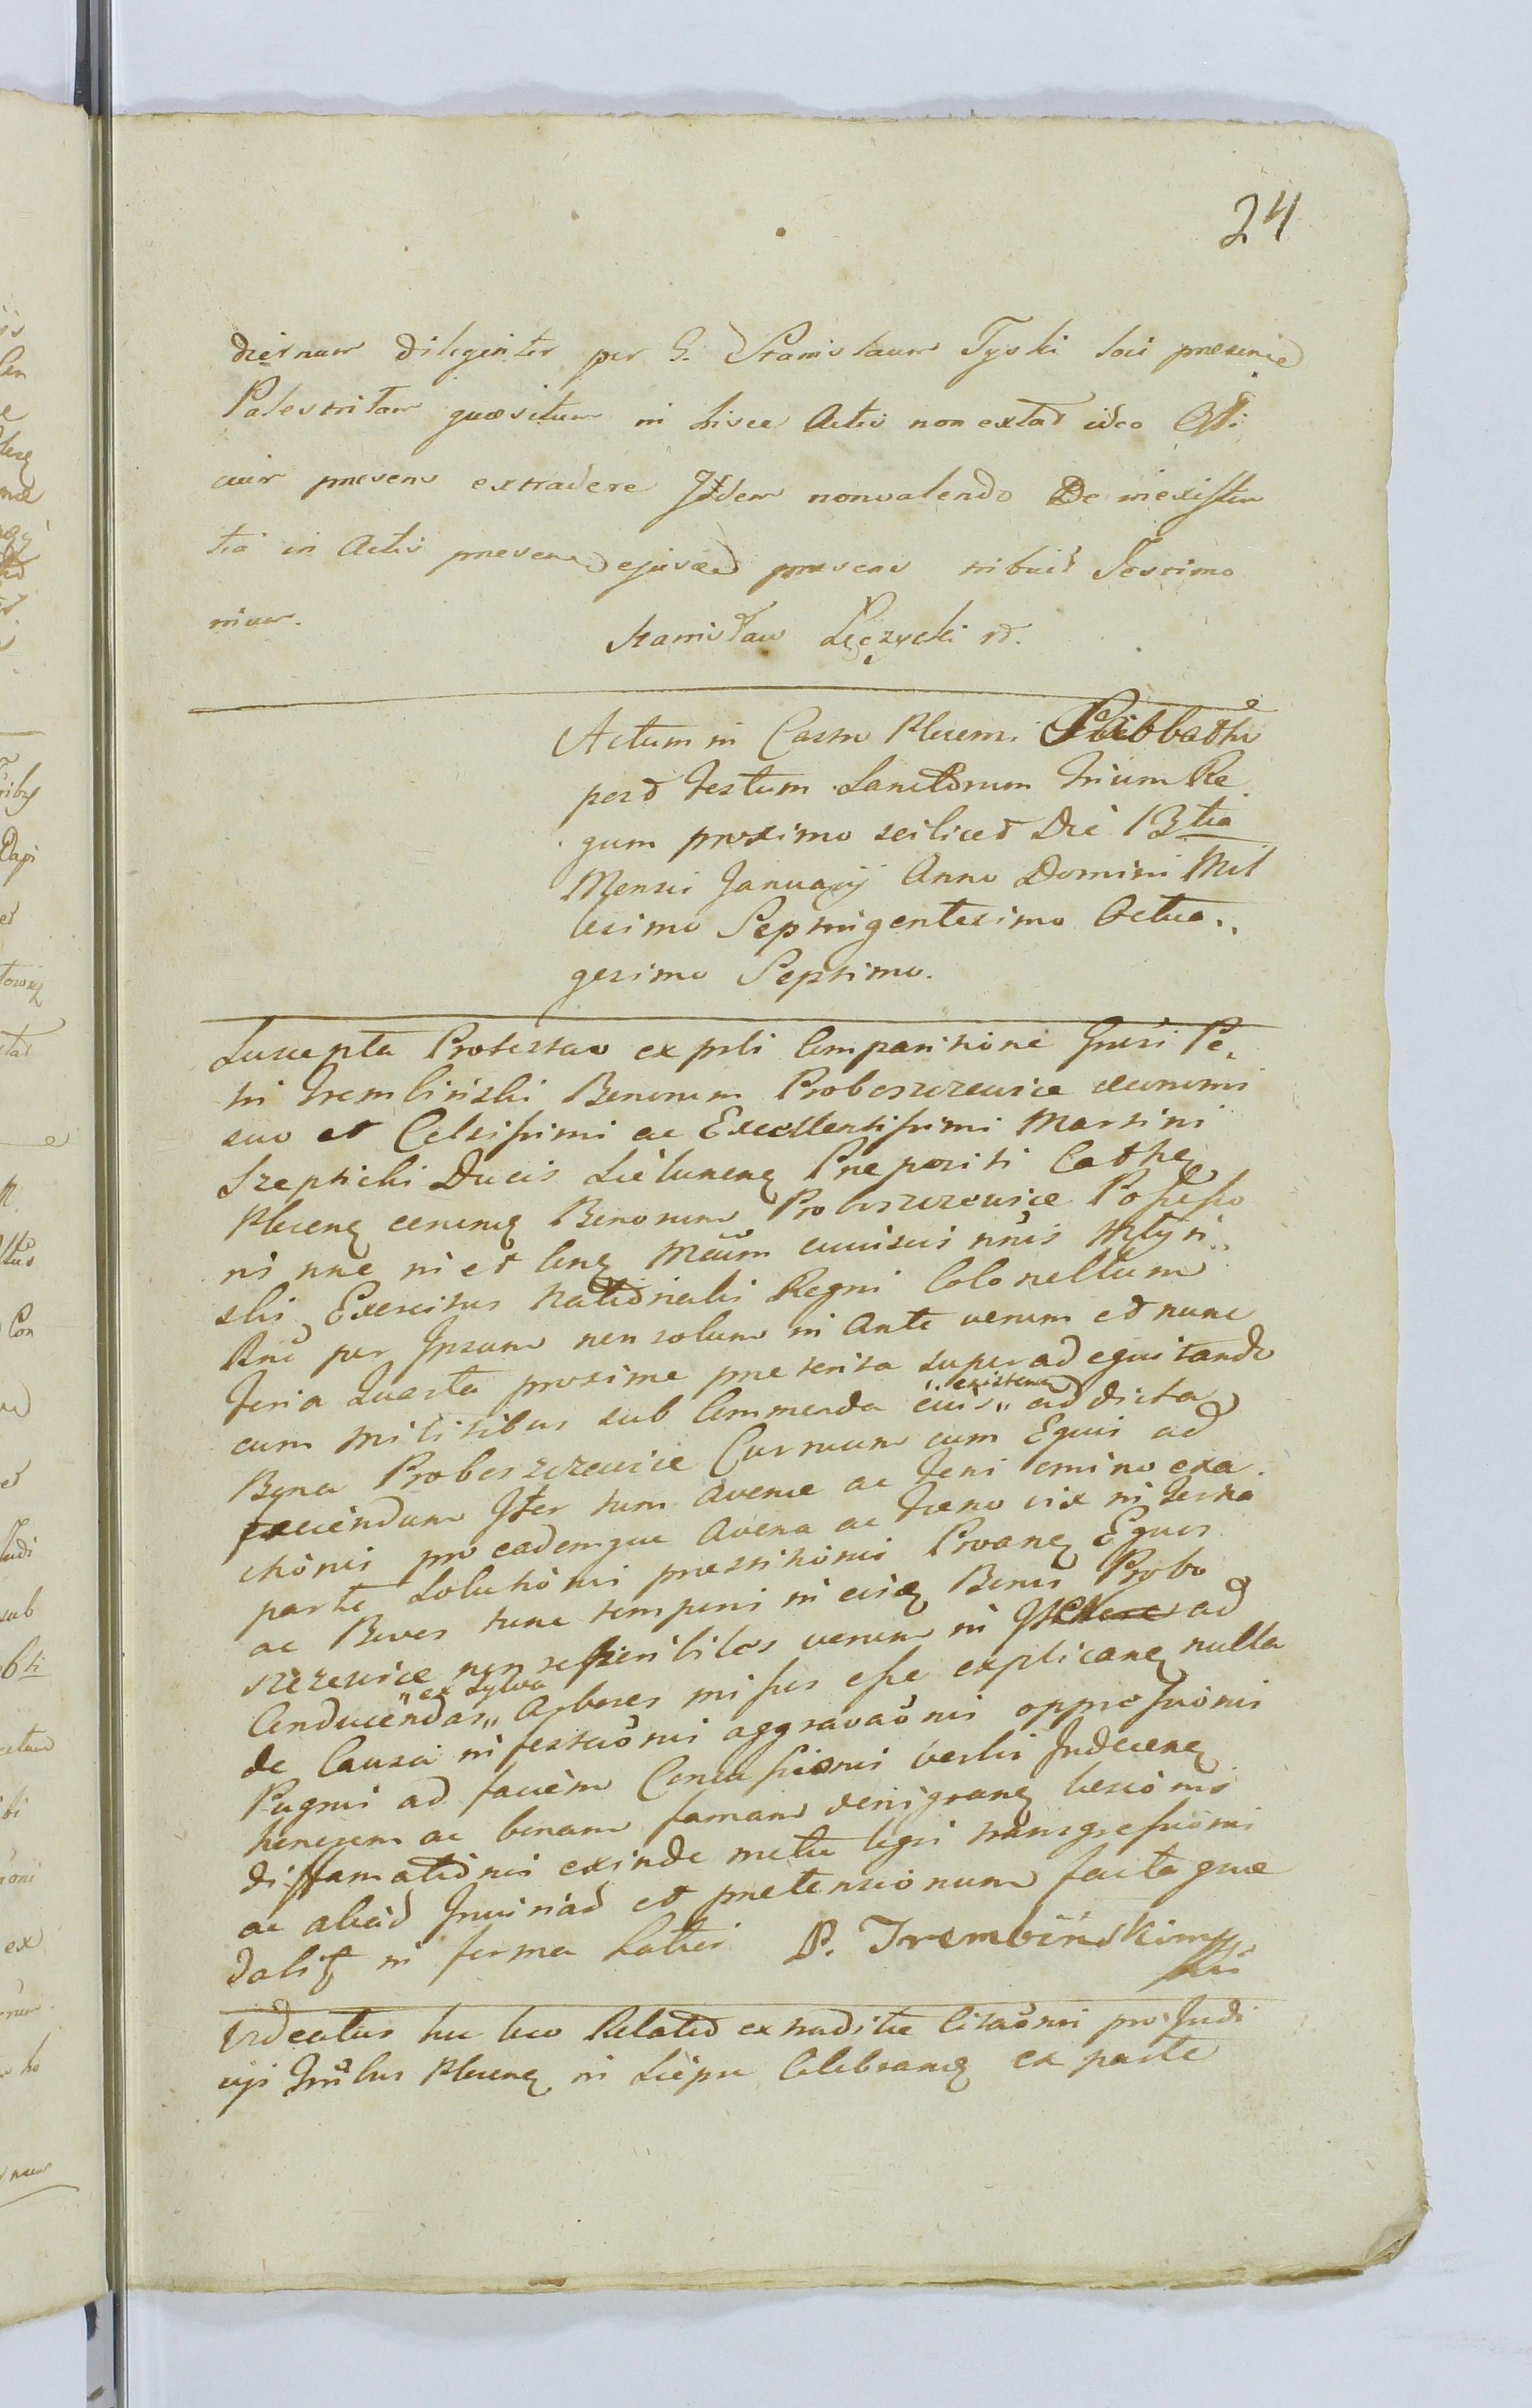 24
diernum diligenter per G. Stanislaum Tyski loci presence
Palestritam quæsitum in hisce Actis non extat ideo Offi
cium presens extradere Idem nonvalendo De inexisten
tia in Actis presen ejusd presens tribuit Testimo
nium.
Stanisław Łęczycki
Actum in Castro Plocensi Sabbatho
post Festum Sanctorum Trium Re
gum proximo scilicet Die 13tia
Mensis Januarij Anno Domini Mil
lesimo Septingentesimo Octua..
gesimo Septimo.
Suscepta Protestao ex psli Comparitione Gnrsi Pe.
tri Trembinski Bonorum Proboszczewice
suo et Celsissimi ac Excellentissimi Martini
Szepticki Ducis Sieluneng Prepositi Cathe
Ploceng Bonorum Proboszczewice Possesso
ris nne in et Cong Mcum
ski Exercitus Nationalis Regni Colonellum
per Ipsum non solum in Ante verum et nunc
Feria Quarta proxime preterita superadequitando
cum Militibus sub Commenda eius „existen„ ad dicta
Bona Proboszczewice Currum cum Equis ad
faciendum Iter tum Avenæ ac Feni omino exa
ctionis pro eademque Avena ac Foeno vix in Terna
parte Solutionis prestitionis Equos
ac Boves tunc temporis in Bonis Probo
szczewice non verum in ad
Conducendas „ex Sylva„ Arbores missos esse explicang nulla
de Causa infestaõnis aggravaõnis oppressionis
Pugnis ad faciem Concussionis verbis Indeceng
honorem ac bonam famam denigrang lesionis
diffamationis exinde metu legis transgressionis
ac aliad Iniuriad et pretensionum facta quæ
dabit in forma Latiori P. Trembinski mp
hic loco Relatio ex traditæ Citaõnis pro Judi
cijs Ploceng in Sierpc Celebrang ex parte